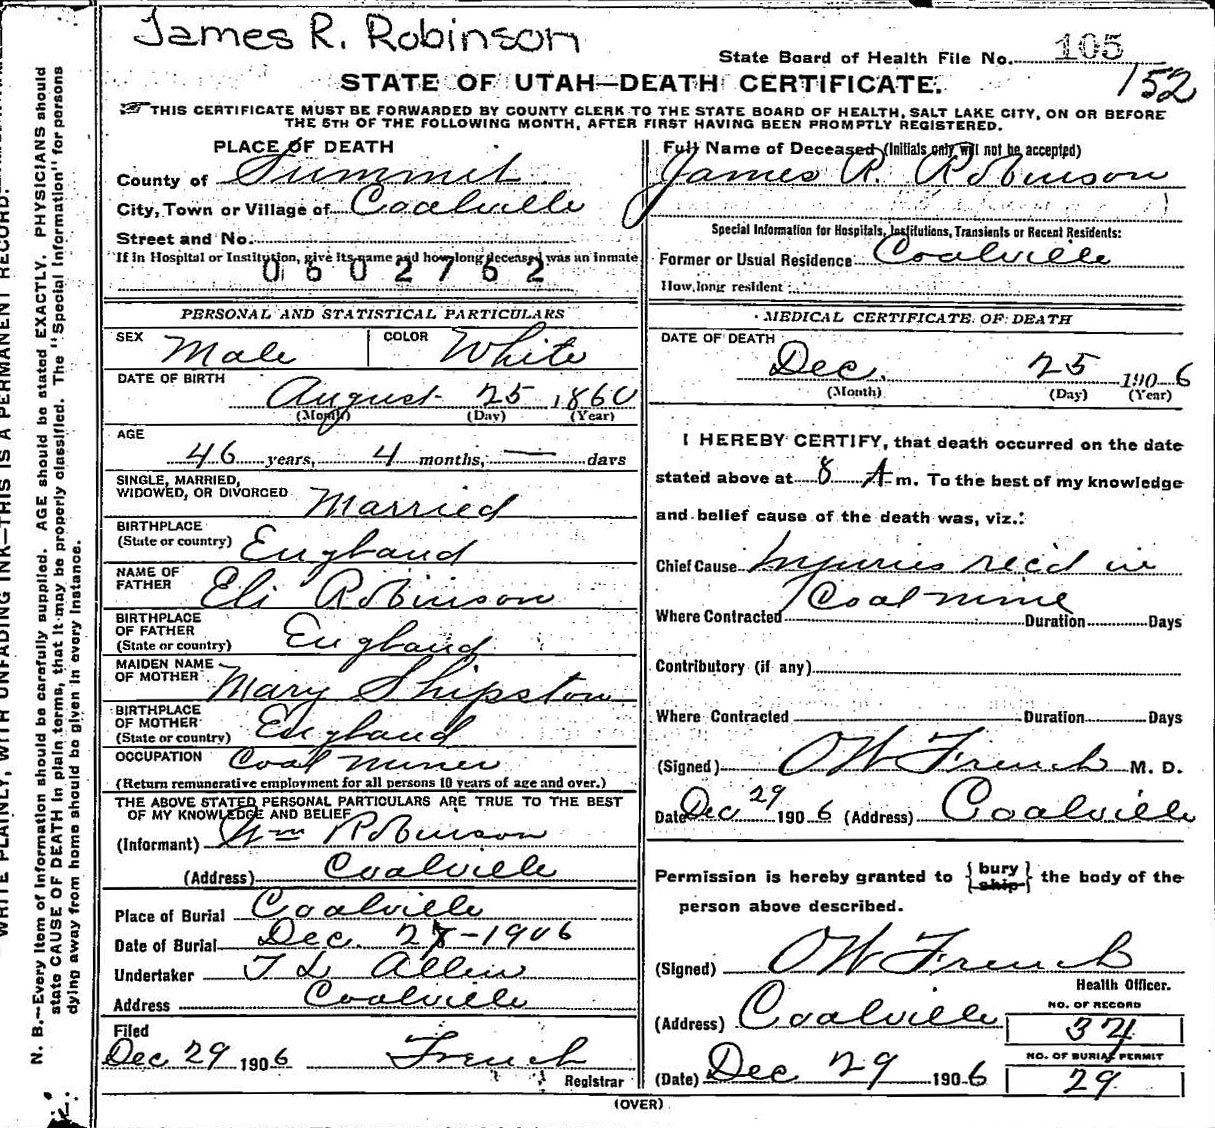 James R. Robinson
State Board of Health File No. 105
152
STATE OF UTAH—DEATH CERTIFICATE.
THIS CERTIFICATE MUST BE FORWARDED BY COUNTY CLERK TO THE STATE BOARD OF HEALTH, SALT LAKE CITY, ON OR BEFORE
THE 5TH OF THE FOLLOWING MONTH, AFTER FIRST HAVING BEEN PROMPTLY REGISTERED.
PLACE OF DEATH
County of Summit
City, Town or Village of Coalville
Street and No.
If in Hospital or Institution, give its name and how long deceased was an inmate
0602762
PERSONAL AND STATISTICAL PARTICULARS
SEX Male COLOR White
DATE OF BIRTH
August 25 1860
(Month) (Day) (Year)
AGE
46 years, 4 months, — days
SINGLE, MARRIED,
WIDOWED, OR DIVORCED Married
BIRTHPLACE
(State or country) England
NAME OF
FATHER Eli Robinson
BIRTHPLACE
OF FATHER
(State or country) England
MAIDEN NAME
OF MOTHER Mary Shipston
BIRTHPLACE
OF MOTHER
(State or country) England
OCCUPATION Coal Miner
(Return remunerative employment for all persons 10 years of age and over.)
THE ABOVE STATED PERSONAL PARTICULARS ARE TRUE TO THE BEST
OF MY KNOWLEDGE AND BELIEF
(Informant) Wm Robinson
(Address) Coalville
Place of Burial Coalville
Date of Burial Dec. 28-1906
Undertaker T L Allen
Address Coalville
Filed
Dec 29 1906 French
Registrar
Full Name of Deceased (Initials only will not be accepted)
James R. Robinson
Special Information for Hospitals, Institutions, Transients or Recent Residents:
Former or Usual Residence Coalville
How long resident
MEDICAL CERTIFICATE OF DEATH
DATE OF DEATH
Dec. 25 1906
(Month) (Day) (Year)
I HEREBY CERTIFY, that death occurred on the date
stated above at 8 A m. To the best of my knowledge
and belief cause of the death was, viz.:
Chief Cause Injuries rec'd in
Coal mine
Where Contracted Duration Days
Contributory (if any)
Where Contracted Duration Days
(Signed) OW French M. D.
Date Dec 29 1906 (Address) Coalville
Permission is hereby granted to {bury ship} the body of the
person above described.
(Signed) OW French
Health Officer.
(Address) Coalville
NO. OF RECORD
34
(Date) Dec 29 1906
NO. OF BURIAL PERMIT
29
(OVER)
WRITE PLAINLY, WITH UNFADING INK—THIS IS A PERMANENT RECORD.
N. B.—Every item of information should be carefully supplied. AGE should be stated EXACTLY. PHYSICIANS should
state CAUSE OF DEATH in plain terms, that it may be properly classified. The "Special Information" for persons
dying away from home should be given in every instance.